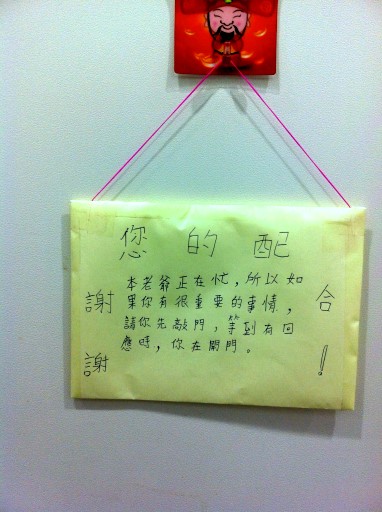 本老爺正在忙，所以如
果你有很重要的事情，
請你先敲門，等到有回
應時，你在開門。
謝謝
您的配
合！